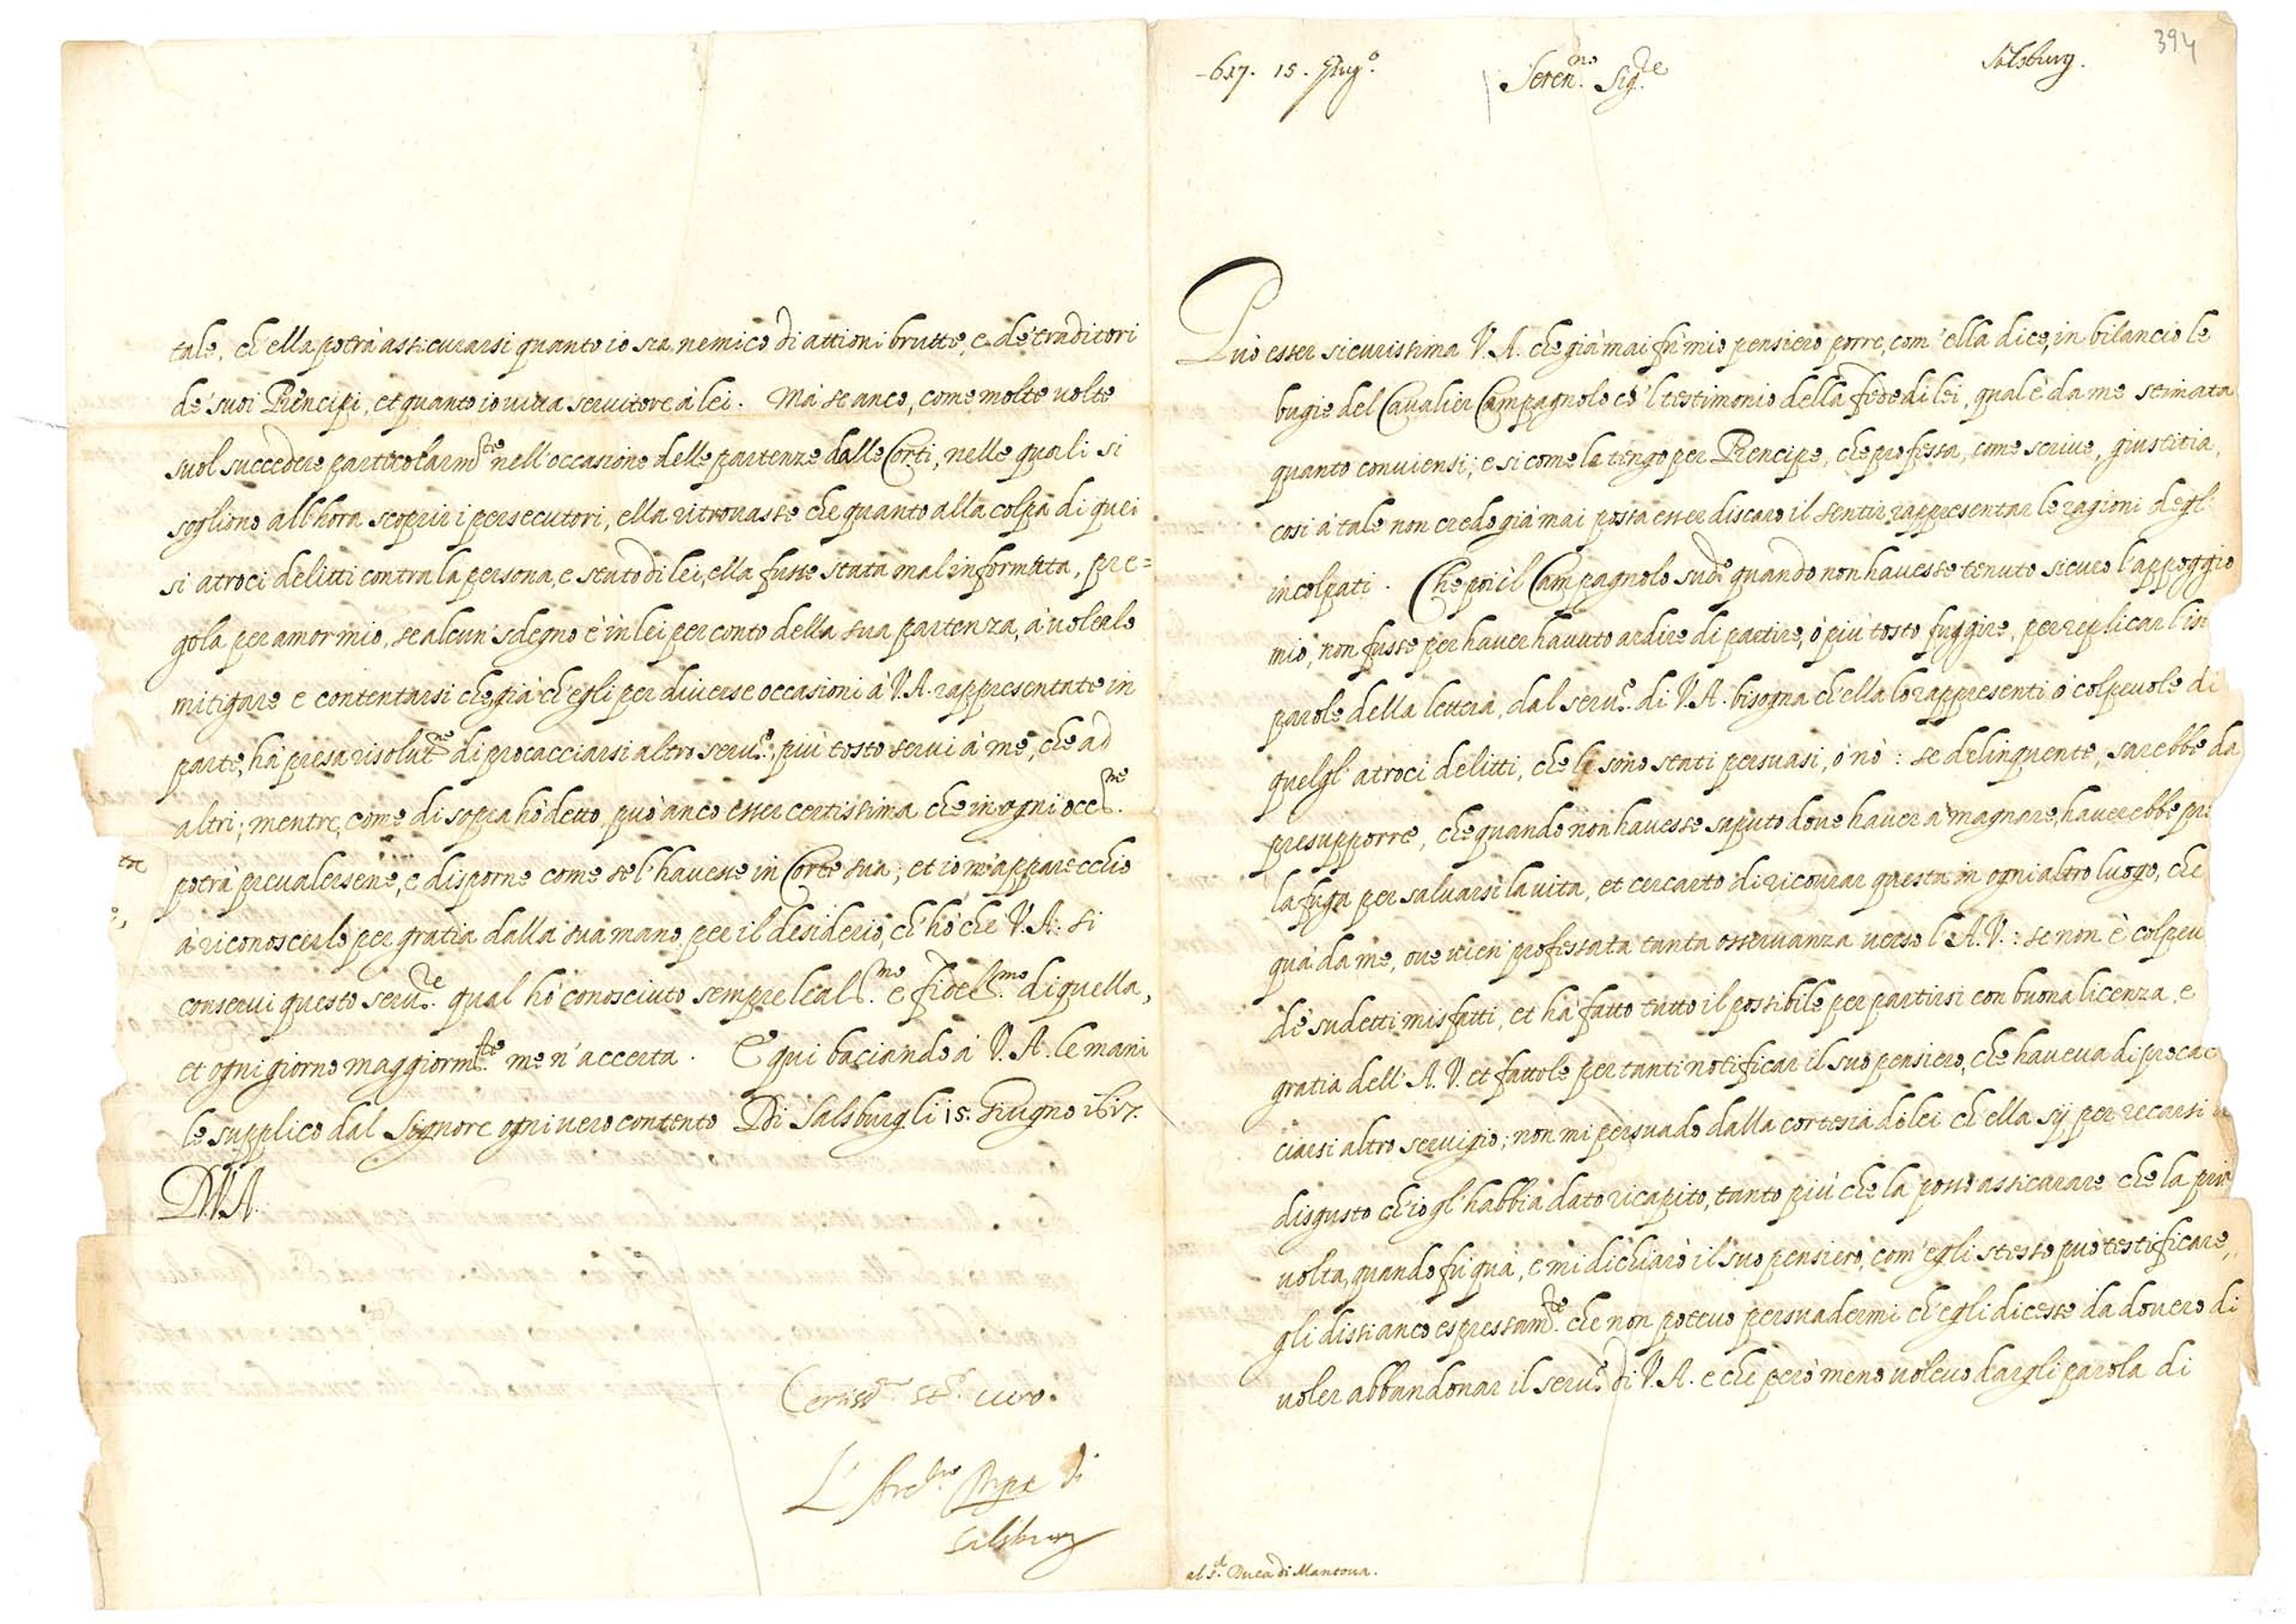 617. 15. Giug.o
Seren.mo Sig.re
Salsburg.
394
Può esser sicurissima V.A. che già mai fu mio pensiero porre, com'ella dice, in bilancio le
bugie del Cavalier Campagnolo co'l testimonio della fede di lei, qual è da me stimata
quanto conviensi; e si come la tengo per Prencipe, che professa, come scrive, giustitia,
cosi à tale non credo già mai possa esser discaro il sentir rappresentar le ragioni degl'
incolpati. Che poi il Campagnolo sud.o quando non havesse tenuto sicuro l'appoggio
mio, non fusse per haver havuto ardire di partire, ò più tosto fuggire, per replicar l'is
parole della lettera, dal serv.o di V.A. bisogna ch'ella lo rappresenti ò colpevole di
quelgl'atroci delitti, che li sono stati persuasi, ò nò: se delinquente, sarebbe da
presupporre, che quando non havesse saputo dove haver à magnare, haverebbe pre
la fuga per salvarsi la vita, et cercarto di ricovrar questa in ogni altro luogo, che
quà da me, ove vien professata tanta osservanza verso l'A.V.: se non è colpev
de' sudetti misfatti, et hà fatto tutto il possibile per partirsi con buona licenza, e
gratia dell'A.V. et fattole per tanti notificar il suo pensiero, che haveva di procac
ciarsi altro servigio; non mi persuado dalla cortesia di lei ch'ella sij per recarsi à
disgusto ch'io gl'habbia dato ricapito, tanto più che la posso assicurare che la pri
volta, quando fu quà, e mi dichiarò il suo pensiero, com'egli stesso può testificare,
gli dissi anco espressam.te che non potevo persuadermi ch'egli dicesse da dovero di
voler abbandonar il serv.o di V.A. e che però meno volevo dargli parola di
al S.r Duca di Mantova.
tale, ch'ella potrà assicurarsi quanto io sia nemico di attioni brutte, e de' traditori
de' suoi Prencipi, et quanto io viva servitore à lei. Mà se anco, come molte volte
suol succedere particolarm.te nell'occasione delle partenze dalle Corti, nelle quali si
sogliono all'hora scoprir i persecutori, ella ritrovasse che quanto alla colpa di quei
si atroci delitti contra la persona, e stato di lei, ella fusse stata mal informata, pre=
gola per amor mio, se alcun sdegno è in lei per conto della sua partenza, à volerlo
mitigare e contentarsi che già ch'egli per diverse occasioni à V.A. rappresentate in
parte, hà presa risolut.ne di procacciarsi altro serv.o, più tosto servi à me, che ad
altri; mentre, come di sopra hò detto, può anco esser certissima che in ogni occ.ne
potrà prevalersene, e disporne come se l'havesse in Corte sua; et io m'apparecchio
à riconoscerlo per gratia dalla sua mano per il desiderio, ch'hò che V.A. si
conservi questo serv.re qual hò conosciuto sempre leal.mo e fidel.mo di quella,
et ogni giorno maggiorm.te me n'accerta. E qui baciando à V.A. le mani
le supplico dal Signore ogni vero contento Di Salsburg li 15. Giugno 1617.
D.V.A.
L'Arc.vo Prpe di
Salsburg